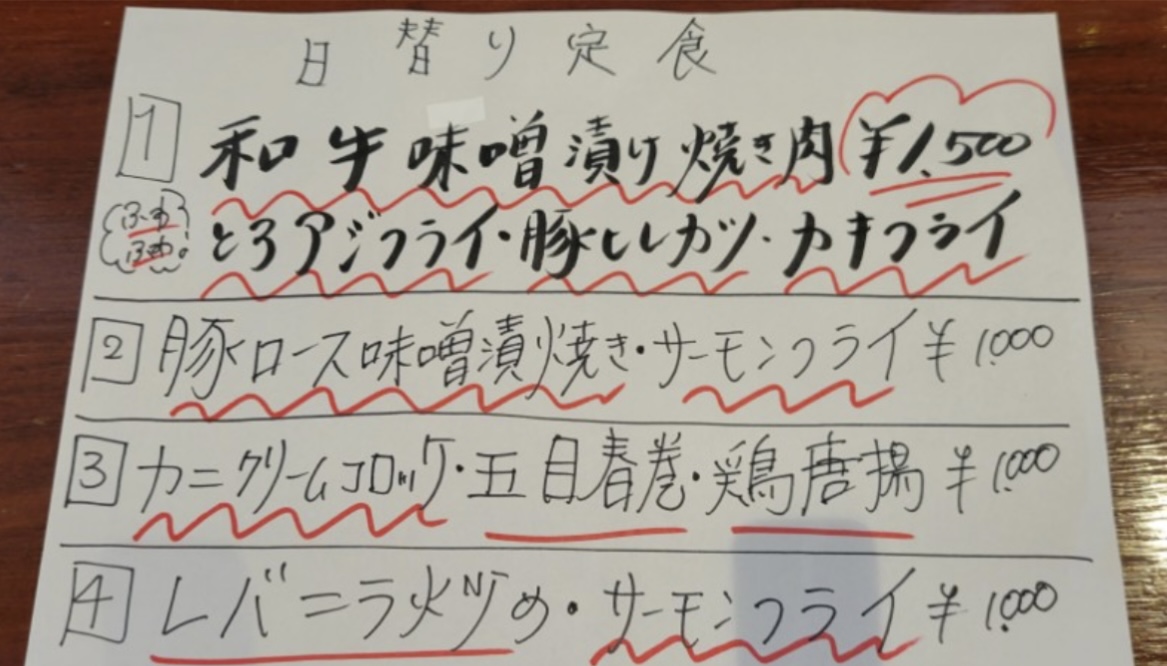 日替り定食
1 和牛味噌漬け焼き肉 ¥1,500
ふわ
ふわ
とろアジフライ・豚ヒレカツ・カキフライ
2 豚ロース味噌漬け焼き・サーモンフライ ¥1,000
3 カニクリームコロッケ・五目春巻・鶏唐揚 ¥1,000
4 レバニラ炒め・サーモンフライ ¥1,000